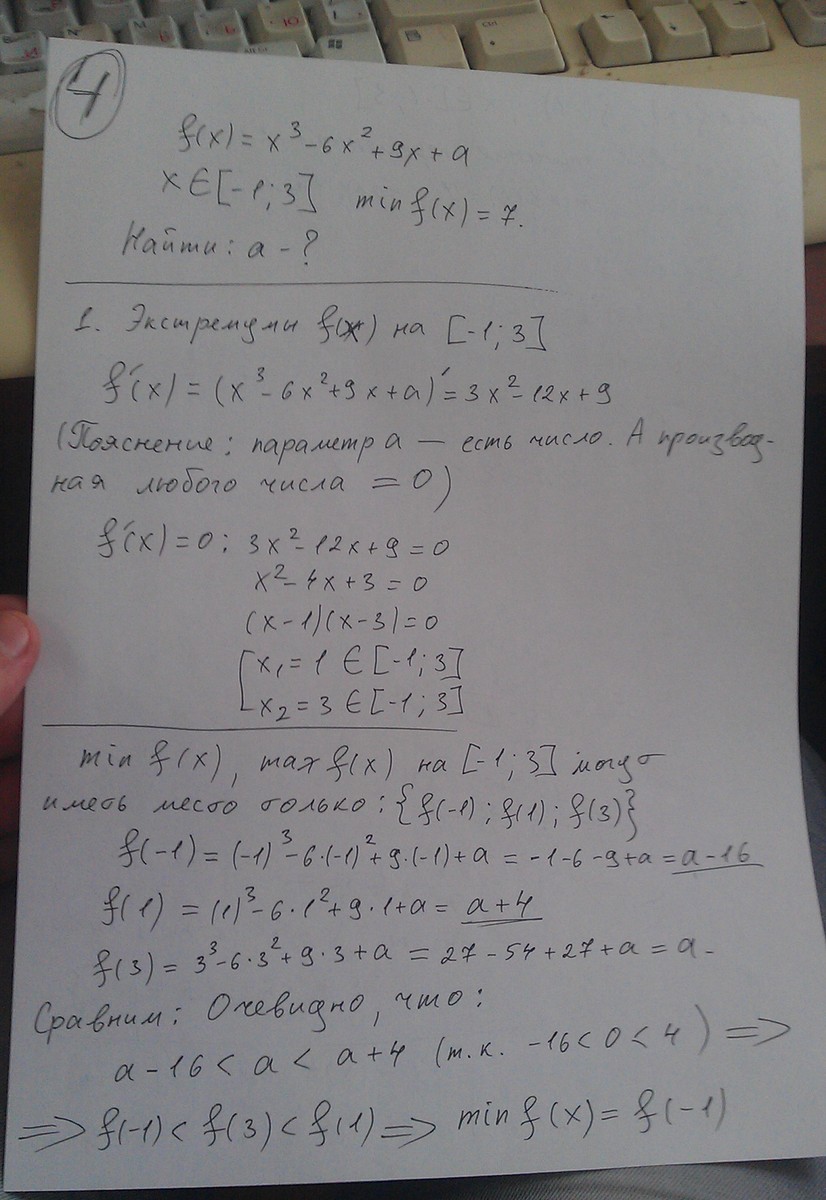 4
f(x) = x³ - 6x² + 9x + a
x ∈ [-1; 3] min f(x) = 7.
Найти: a - ?
1. Экстремумы f(x) на [-1; 3]
f′(x) = (x³ - 6x² + 9x + a)′ = 3x² - 12x + 9
(Пояснение: параметр a — есть число. А производ-
ная любого числа = 0)
f′(x) = 0: 3x² - 12x + 9 = 0
x² - 4x + 3 = 0
(x - 1)(x - 3) = 0
[ x₁ = 1 ∈ [-1; 3]
x₂ = 3 ∈ [-1; 3]
min f(x), max f(x) на [-1; 3] могут
иметь место только: {f(-1); f(1); f(3)}
f(-1) = (-1)³ - 6·(-1)² + 9·(-1) + a = -1 - 6 - 9 + a = a - 16
f(1) = (1)³ - 6·1² + 9·1 + a = a + 4
f(3) = 3³ - 6·3² + 9·3 + a = 27 - 54 + 27 + a = a -
Сравним: Очевидно, что:
a - 16 < a < a + 4 (т.к. -16 < 0 < 4) ⟹
⟹ f(-1) < f(3) < f(1) ⟹ min f(x) = f(-1)